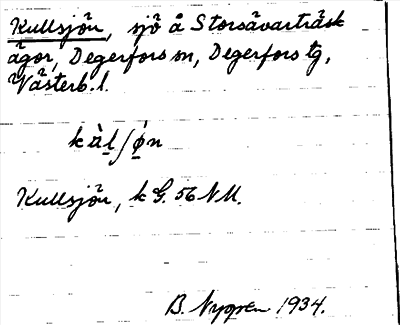 Kullsjön, sjö å Storsävarträsk
ägor, Degerfors sn, Degerfors tg,
Västerb. l.
kȁl̲ʃǿ̲n
Kullsjön, k G. 56 NV.
B. Nygren 1934.